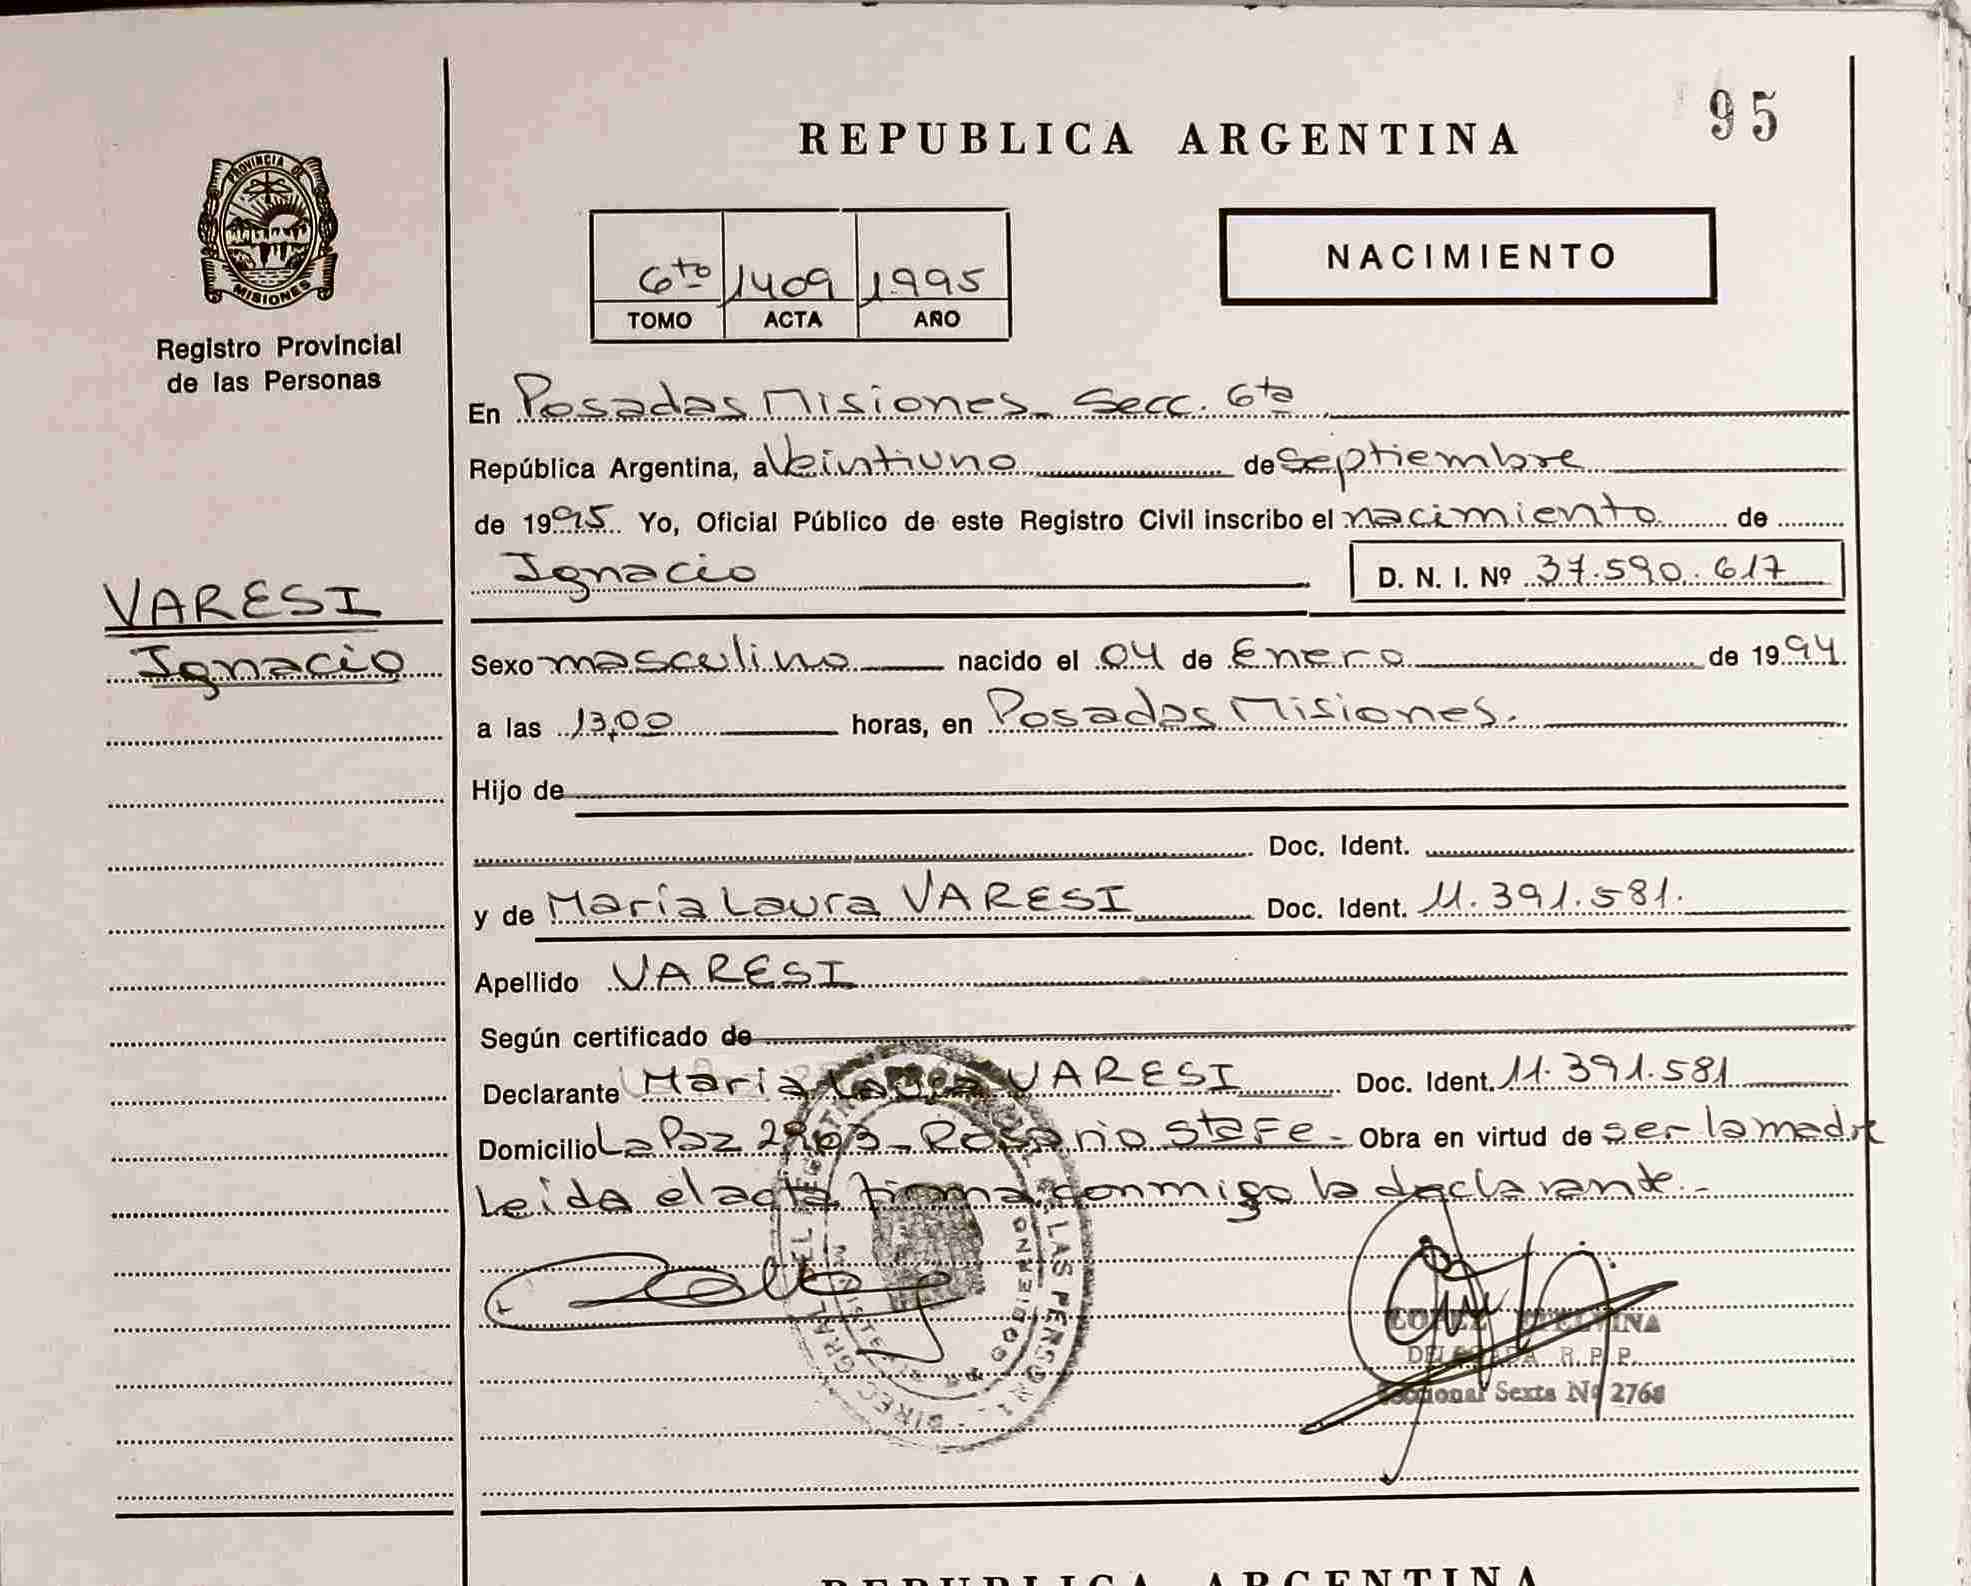 95
REPUBLICA ARGENTINA
PROVINCIA DE
MISIONES
Registro Provincial
de las Personas
NACIMIENTO
6to 1409 1995
TOMO ACTA AÑO
En Posadas Misiones. Secc. 6ta
República Argentina, a Veintiuno de Septiembre
de 1995 Yo, Oficial Público de este Registro Civil inscribo el nacimiento de
Ignacio D. N. I. Nº 37.590.617
VARESI
Ignacio
Sexo masculino nacido el 04 de Enero de 1994.
a las 13,00 horas, en Posadas Misiones.
Hijo de
Doc. Ident.
y de María Laura VARESI Doc. Ident. 11.391.581.
Apellido VARESI
Según certificado de
Declarante Maria Laura VARESI Doc. Ident. 11.391.581
Domicilio La Paz Rosario Sta Fe - Obra en virtud de ser la madre
Leida el acta firma conmigo la declarante.-
LAS PERSONAS
GOBIERNO
DIREC. GRAL.
DELEGADA R.P.P.
Seccional Sexta Nº 276
REPUBLICA ARGENTINA